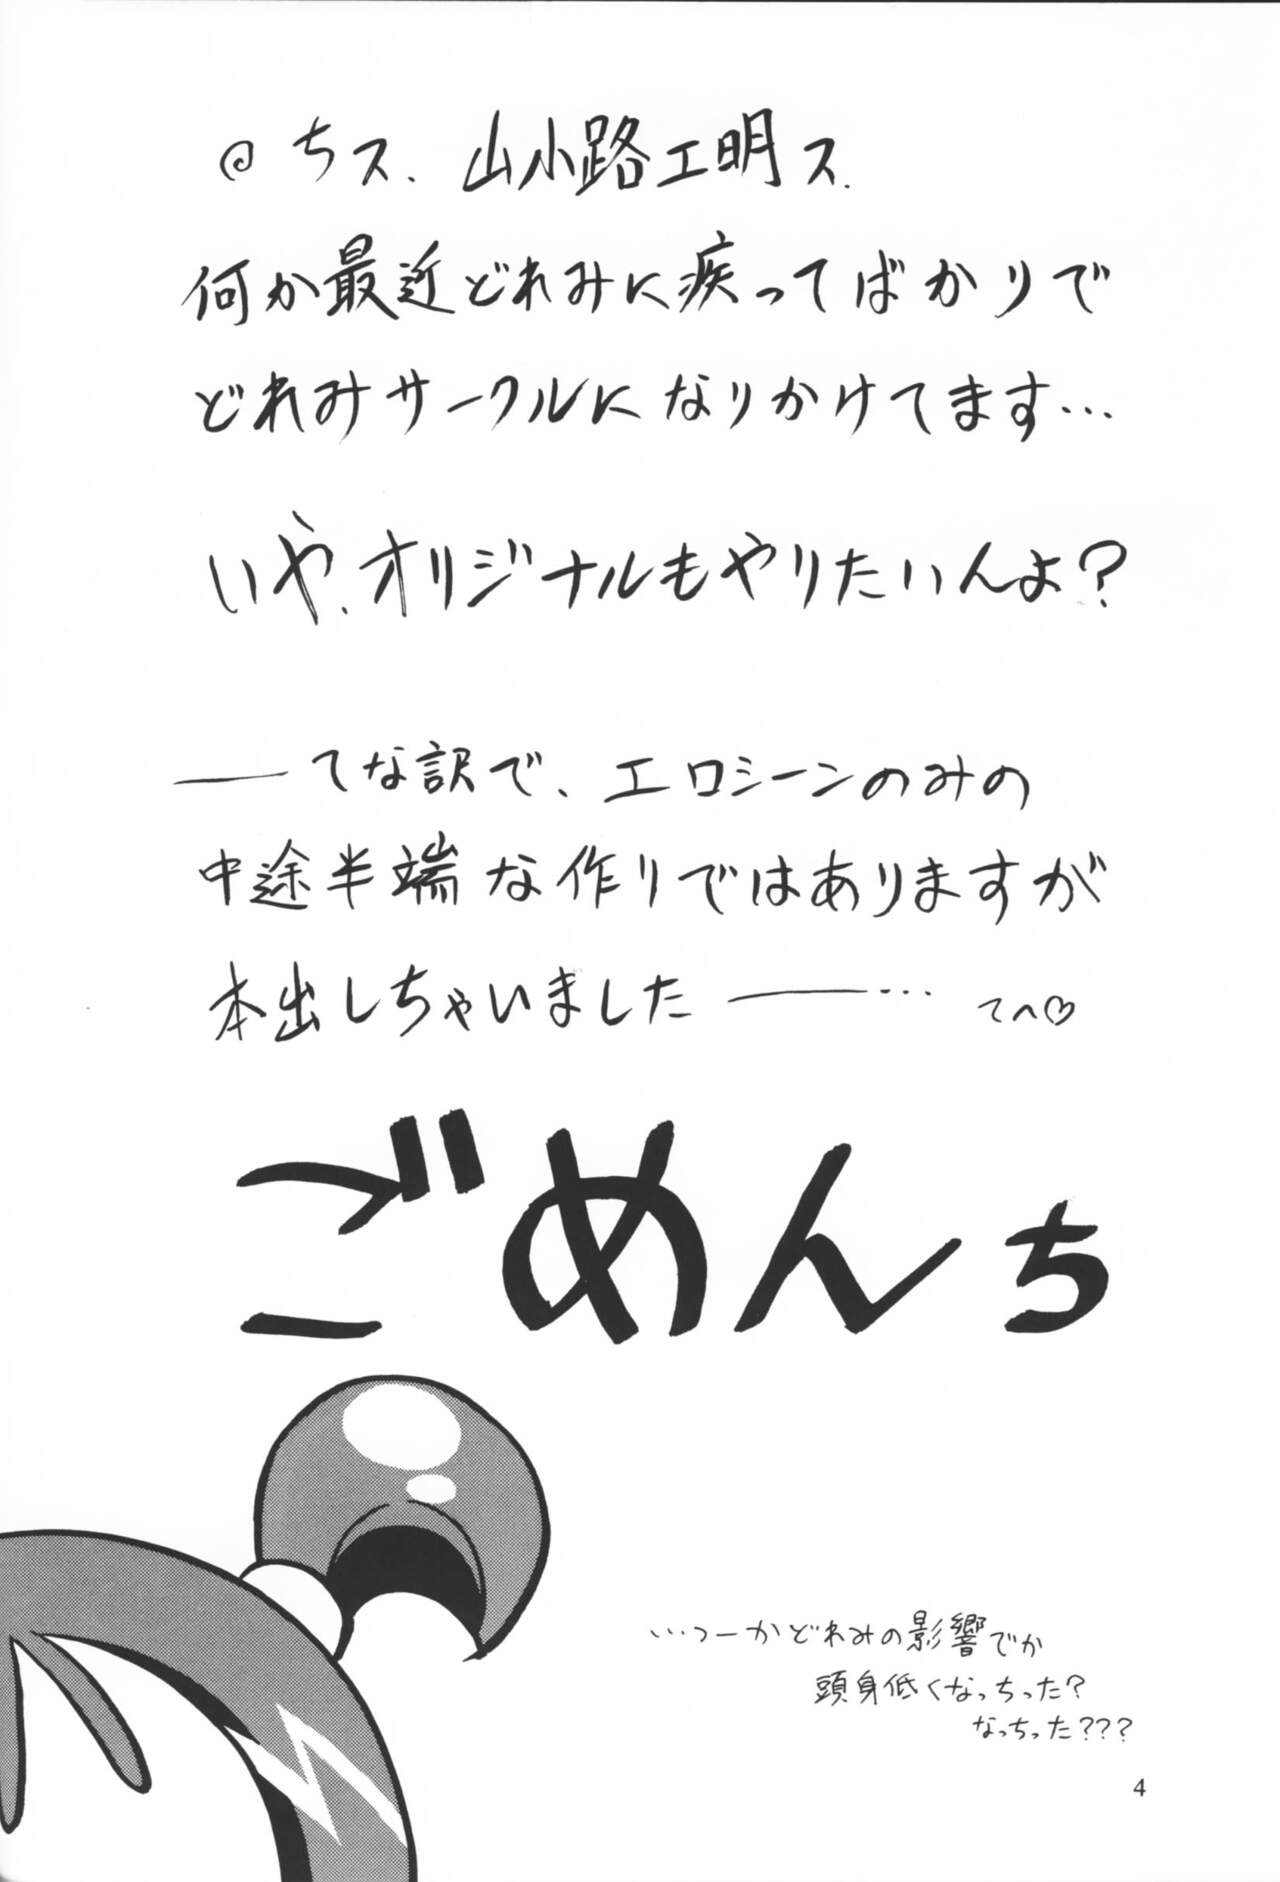 @ちス、山小路工明ス.
何か最近どれみに疾ってばかりで
どれみサークルになりかけてます…
いや、オリジナルもやりたいんよ？
――てな訳で、エロシーンのみの
中途半端な作りではありますが
本出しちゃいました――… てへ♡
ごめんち
…つーかどれみの影響でか
頭身低くなっちった？
なっちった？？？
4